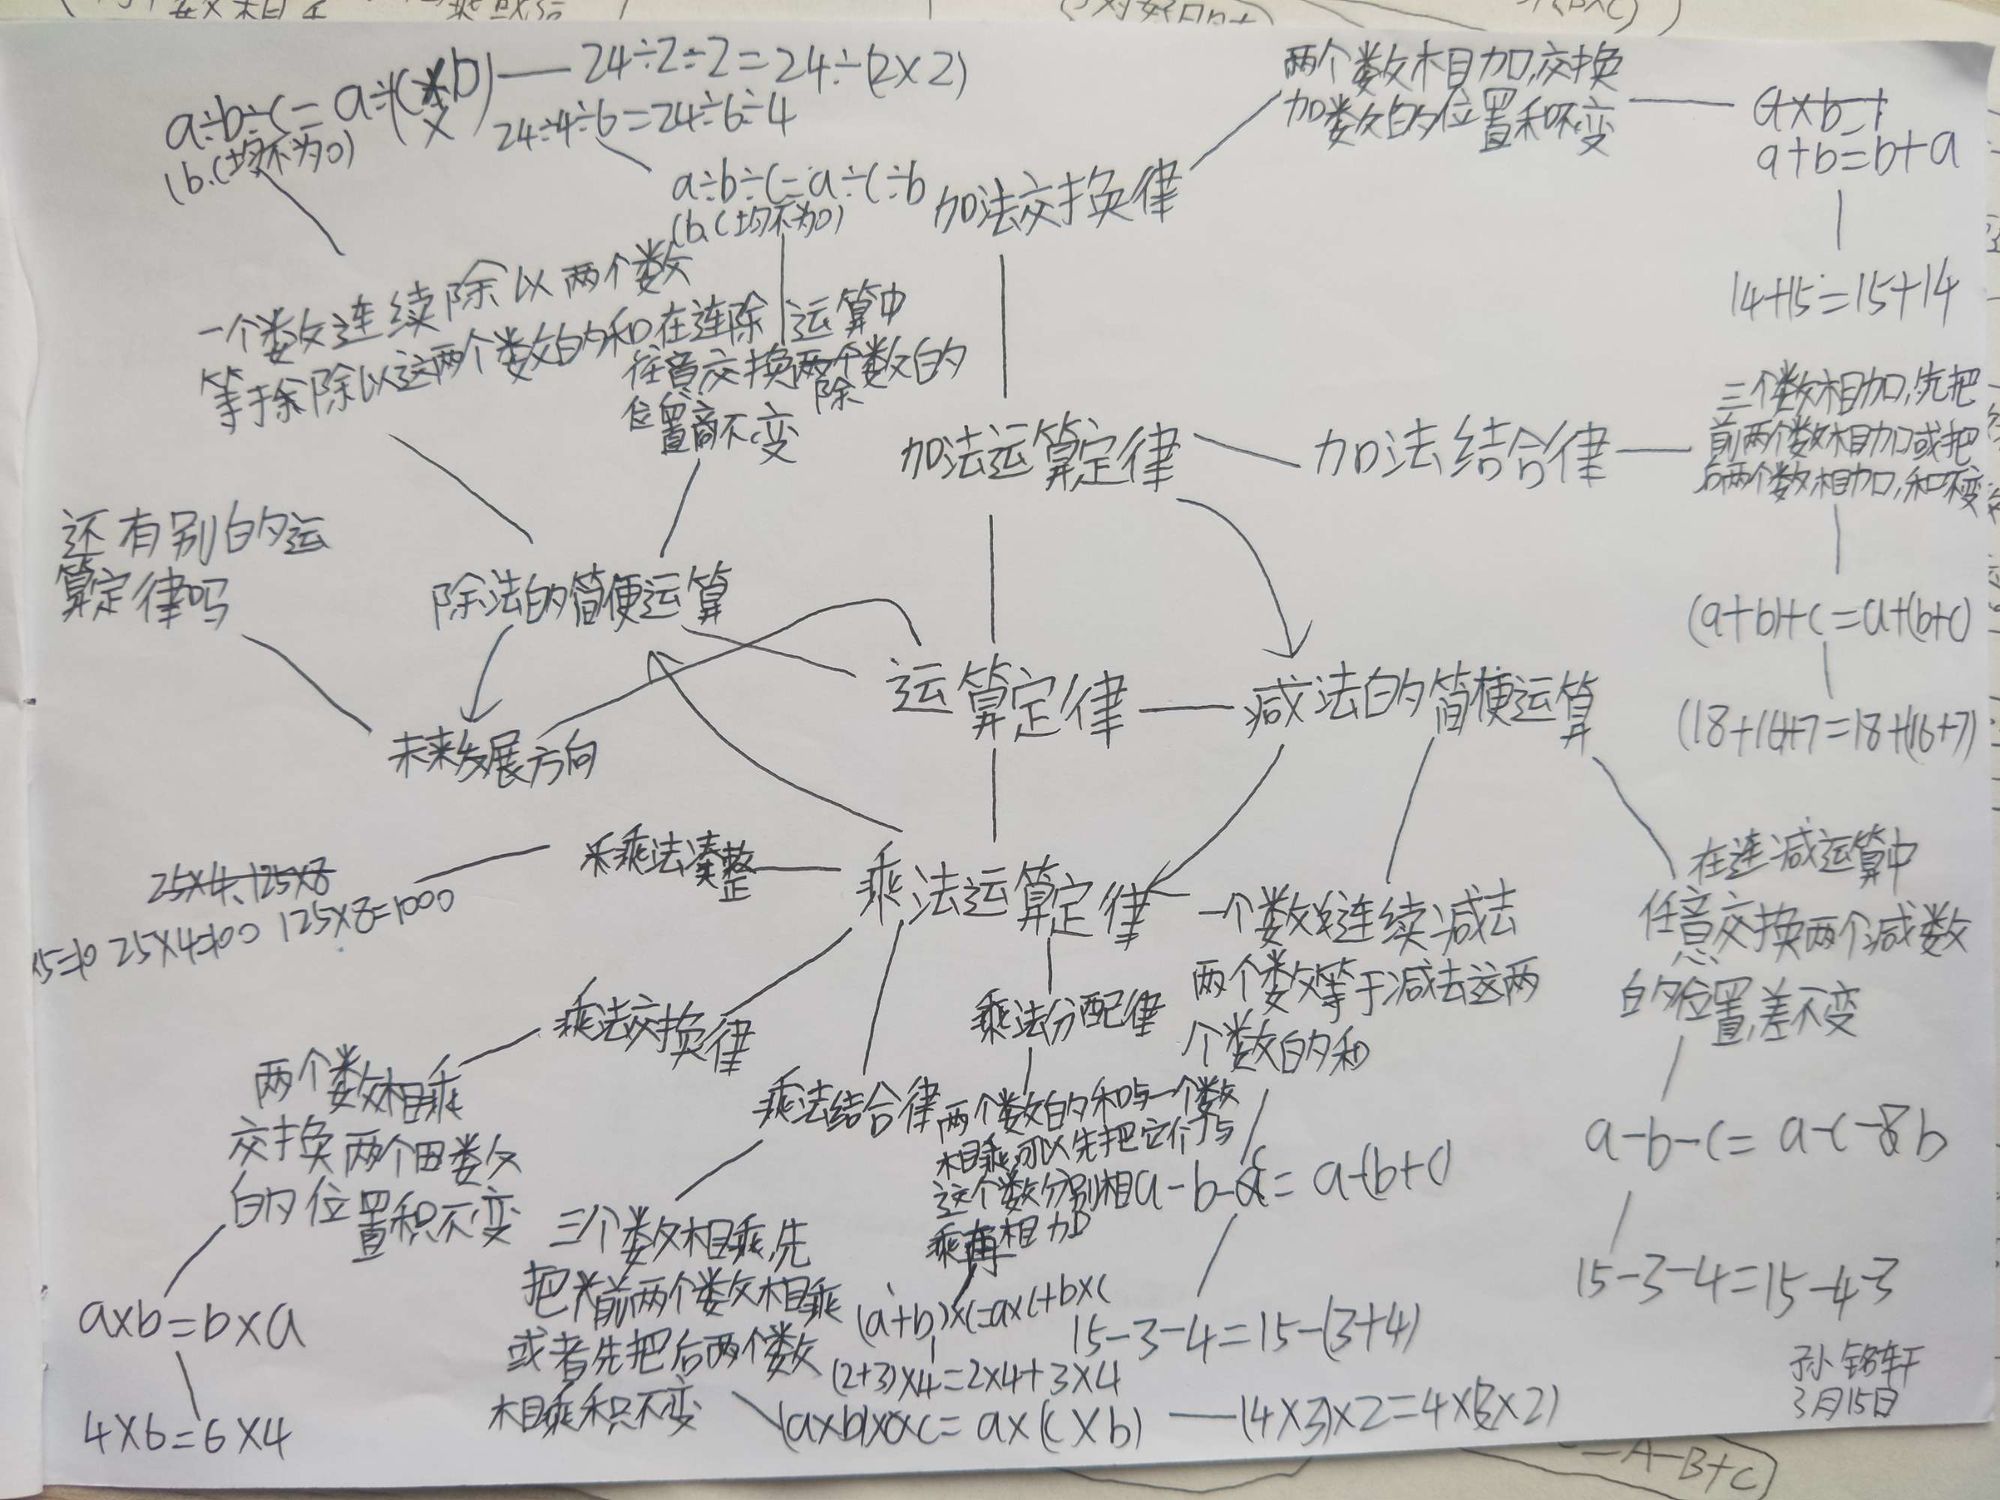 a÷b÷c=a÷(c×b)
24÷2÷2=24÷(2×2)
(b.c均不为0)
24÷4÷6=24÷6÷4
a÷b÷c=a÷c÷b
(b.c均不为0)
加法交换律
两个数相加,交换
加数的位置和不变
a×b=
a+b=b+a
14+15=15+14
一个数连续除以两个数
等于除以这两个数的和
在连除运算中
任意交换两个除数的
位置商不变
加法运算定律
加法结合律
三个数相加,先把
前两个数相加或把
后两个数相加,和不变
(a+b)+c=a+(b+c)
(18+16)+7=18+(16+7)
还有别的运
算定律吗
除法的简便运算
未来发展方向
运算定律
减法的简便运算
乘法凑整
25×4、125×8
×5=10 25×4=100 125×8=1000
乘法运算定律
一个数连续减去
两个数等于减去这两
个数的和
a-b-c=a-(b+c)
15-3-4=15-(3+4)
在连减运算中
任意交换两个减数
的位置,差不变
a-b-c=a-c-b
15-3-4=15-4-3
乘法交换律
两个数相乘
交换两个因数
的位置积不变
a×b=b×a
4×6=6×4
乘法结合律
三个数相乘,先
把前两个数相乘
或者先把后两个数
相乘积不变
(a×b)×c=a×(c×b)
(4×3)×2=4×(3×2)
乘法分配律
两个数的和与一个数
相乘,可以先把它们与
这个数分别相
乘再相加
(a+b)×c=a×c+b×c
(2+3)×4=2×4+3×4
孙铭轩
3月15日
-A-B+C